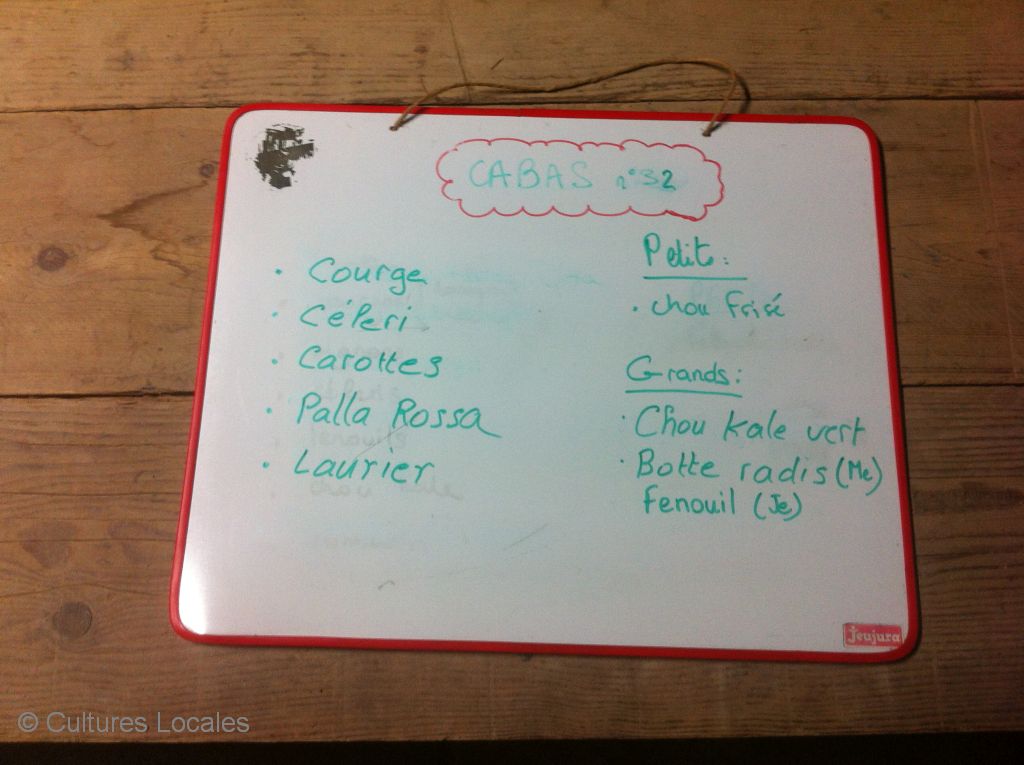 CABAS n°32
• Courge
• Céleri
• Carottes
• Palla Rossa
• Laurier
Petits:
• chou frisé
Grands:
• Chou kale vert
• Botte radis (Me)
fenouil (Je)
Jeujura
© Cultures Locales